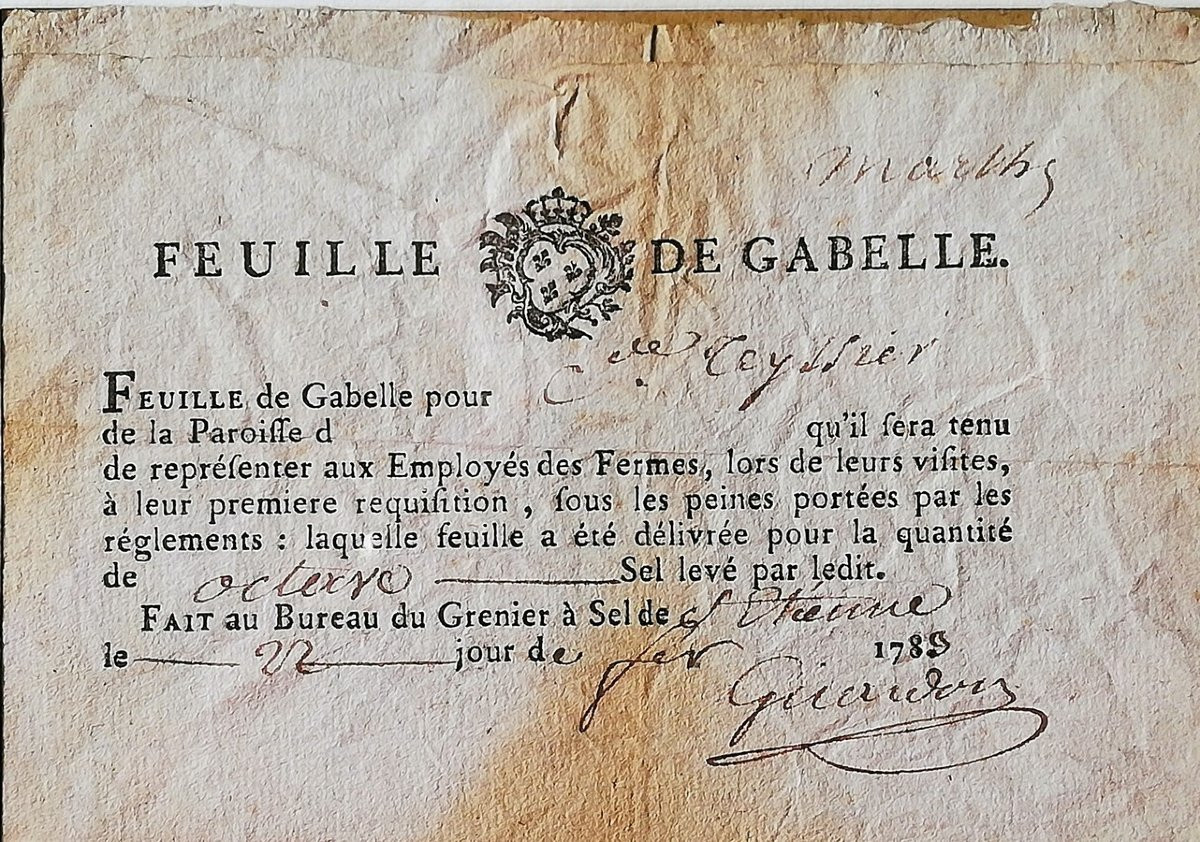 marthe
FEUILLE DE GABELLE.
de Teyssier
FEUILLE de Gabelle pour
de la Paroiſſe d qu'il ſera tenu
de repréſenter aux Employés des Fermes, lors de leurs viſites,
à leur premiere requiſition, ſous les peines portées par les
réglements : laquelle feuille a été délivrée pour la quantité
de Sel levé par ledit.
FAIT au Bureau du Grenier à Sel de St Etienne
le 22 jour de fer 1783